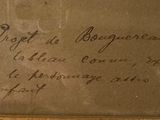 Projet de Bouguereau
tableau connu, ex
le personnage assis
enfant